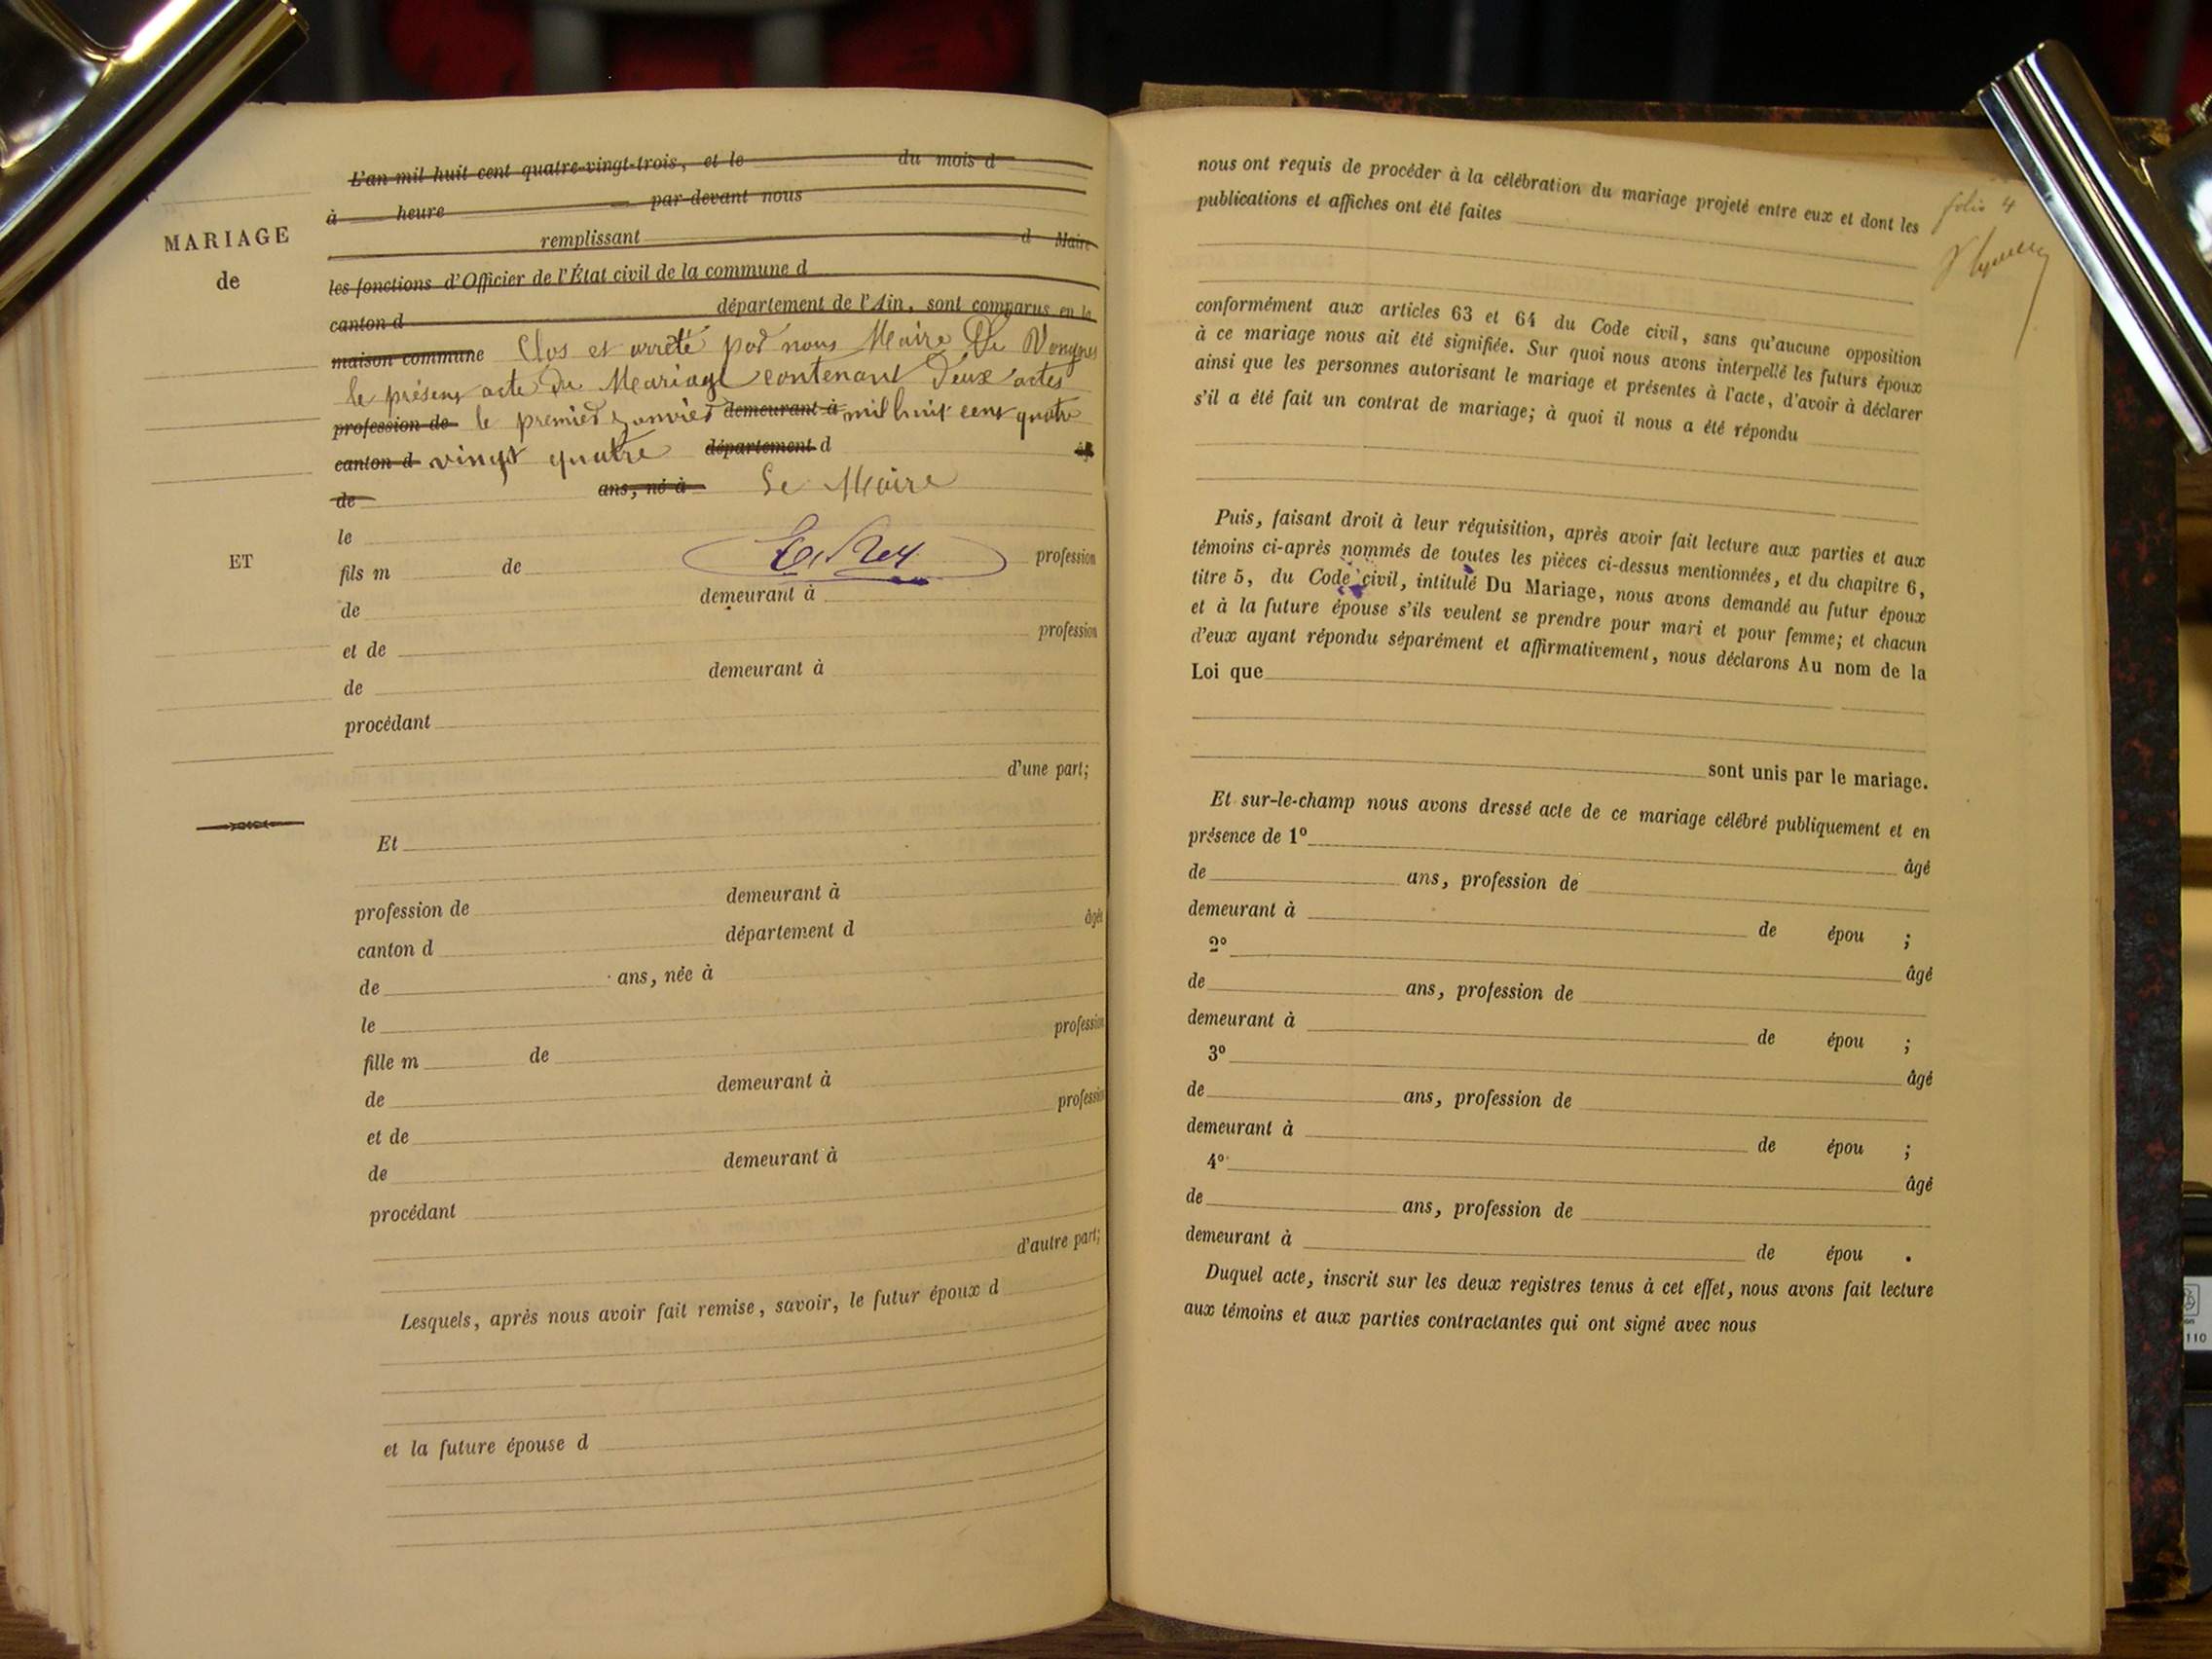 MARIAGE
de
ET
L'an mil huit cent quatre-vingt-trois, et le du mois d
à heure par-devant nous
remplissant d Maire
les fonctions d'Officier de l'État civil de la commune d
canton d département de l'Ain, sont comparus en la
maison commune Clos et arrêté par nous Maire de Vongnes
le présent acte du Mariage contenant deux actes
profession de le premier Janvier demeurant à mil huit cent quatre
canton d vingt quatre département d
de ans, né à Le Maire
le
fils m de profession
de demeurant à
et de profession
de demeurant à
procédant
d'une part;
Et
profession de demeurant à
canton d département d âgée
de ans, née à
le
fille m de profession
de demeurant à
et de profession
de demeurant à
procédant
d'autre part;
Lesquels, après nous avoir fait remise, savoir, le futur époux d
et la future épouse d
folio 4
nous ont requis de procéder à la célébration du mariage projeté entre eux et dont les
publications et affiches ont été faites
conformément aux articles 63 et 64 du Code civil, sans qu'aucune opposition
à ce mariage nous ait été signifiée. Sur quoi nous avons interpellé les futurs époux
ainsi que les personnes autorisant le mariage et présentes à l'acte, d'avoir à déclarer
s'il a été fait un contrat de mariage; à quoi il nous a été répondu
Puis, faisant droit à leur réquisition, après avoir fait lecture aux parties et aux
témoins ci-après nommés de toutes les pièces ci-dessus mentionnées, et du chapitre 6,
titre 5, du Code civil, intitulé Du Mariage, nous avons demandé au futur époux
et à la future épouse s'ils veulent se prendre pour mari et pour femme; et chacun
d'eux ayant répondu séparément et affirmativement, nous déclarons Au nom de la
Loi que
sont unis par le mariage.
Et sur-le-champ nous avons dressé acte de ce mariage célébré publiquement et en
présence de 1º âgé
de ans, profession de
demeurant à de épou ;
2º âgé
de ans, profession de
demeurant à de épou ;
3º âgé
de ans, profession de
demeurant à de épou ;
4º âgé
de ans, profession de
demeurant à de épou .
Duquel acte, inscrit sur les deux registres tenus à cet effet, nous avons fait lecture
aux témoins et aux parties contractantes qui ont signé avec nous
110